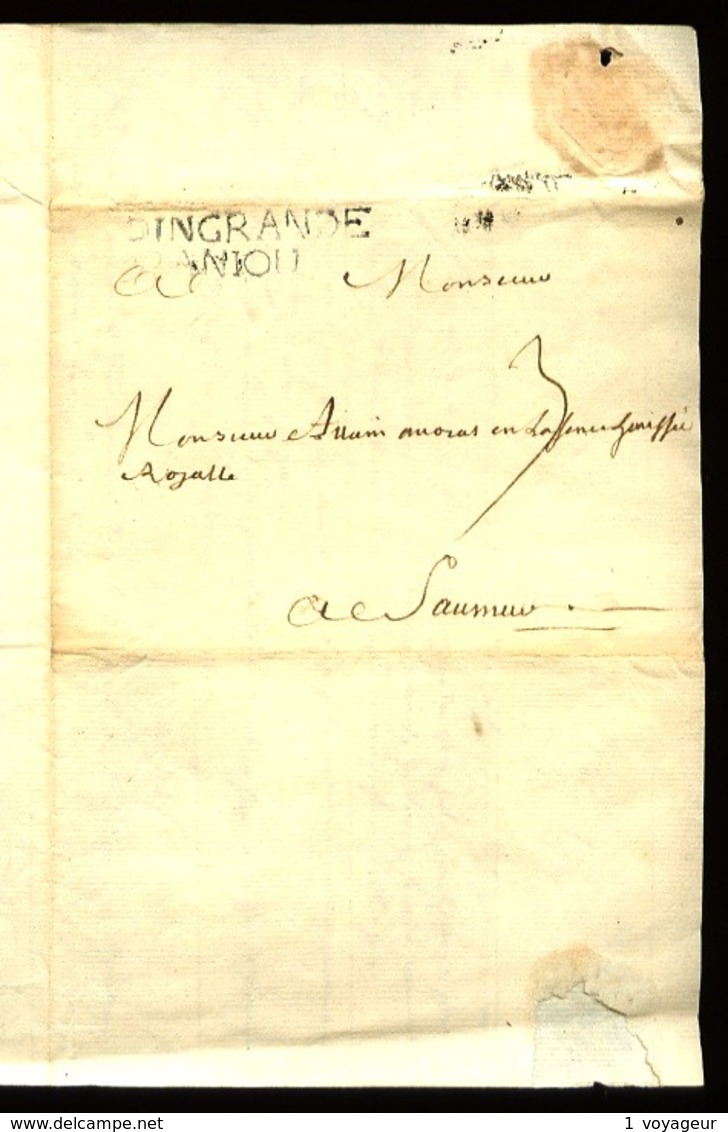 DINGRANDE
DANIOU
A Monsieur
3
Monsieur Allain auocat en La senechaussée
Royalle
A Saumur
www.delcampe.net
1 voyageur